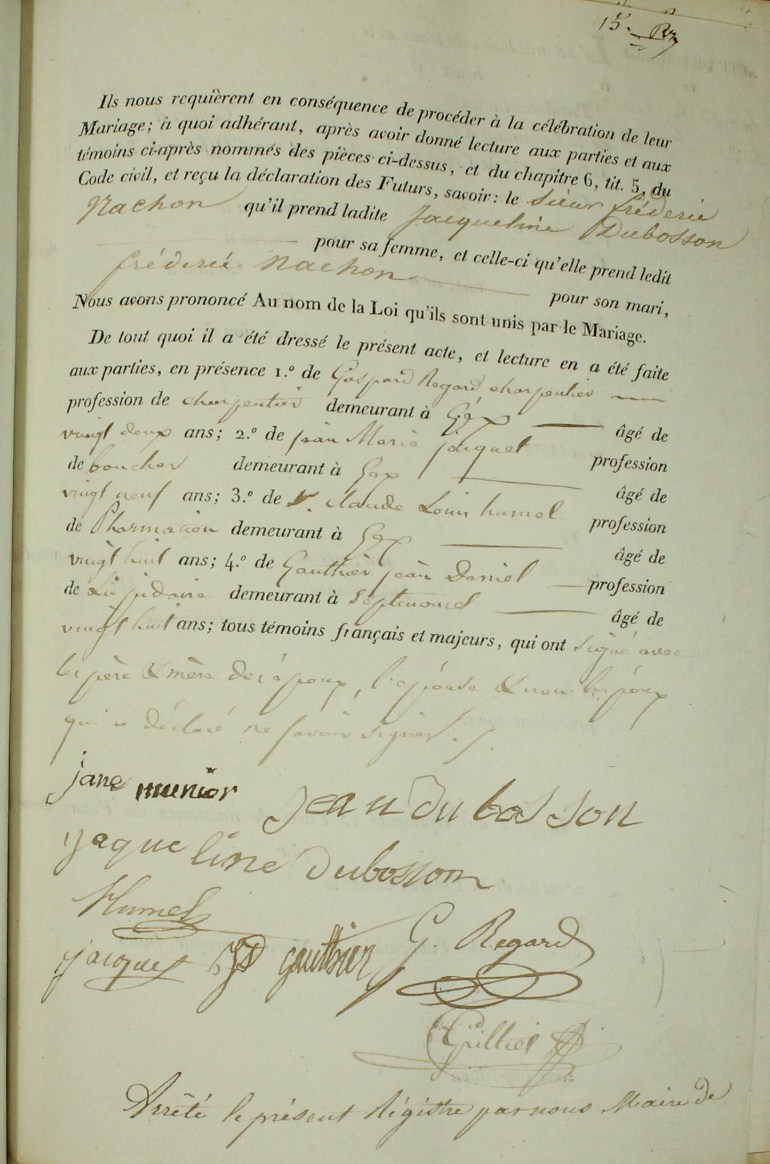 15.
Ils nous requièrent en conséquence de procéder à la célébration de leur
Mariage; à quoi adhérant, après avoir donné lecture aux parties et aux
témoins ci-après nommés des pièces ci-dessus, et du chapitre 6, tit. 5, du
Code civil, et reçu la déclaration des Futurs, savoir: le Sieur fréderic
Nachon qu'il prend ladite Jacqueline Dubosson
pour sa femme, et celle-ci qu'elle prend ledit
fréderic Nachon pour son mari,
Nous avons prononcé Au nom de la Loi qu'ils sont unis par le Mariage.
De tout quoi il a été dressé le présent acte, et lecture en a été faite
aux parties, en présence 1.º de Gaspard Regard charpentier
profession de charpentier demeurant à Gex âgé de
vingt deux ans; 2.º de jean Marie jacquet profession
de boucher demeurant à Gex âgé de
vingt neuf ans; 3.º de claude Louis humel profession
de Pharmacien demeurant à Gex âgé de
vingt huit ans; 4.º de Gauthier jean Daniel profession
de Lapidaire demeurant à Septmoncel âgé de
vingt huit ans; tous témoins français et majeurs, qui ont signé avec
les père & mère de l'époux, l'épouse & non l'époux
qui a déclaré ne savoir signer ./.
jane munier jean dubosson
jaqueline Dubosson
Humel
jacquet JD gauthier G. Regard
Arrêté le présent Régistre par nous Maire de